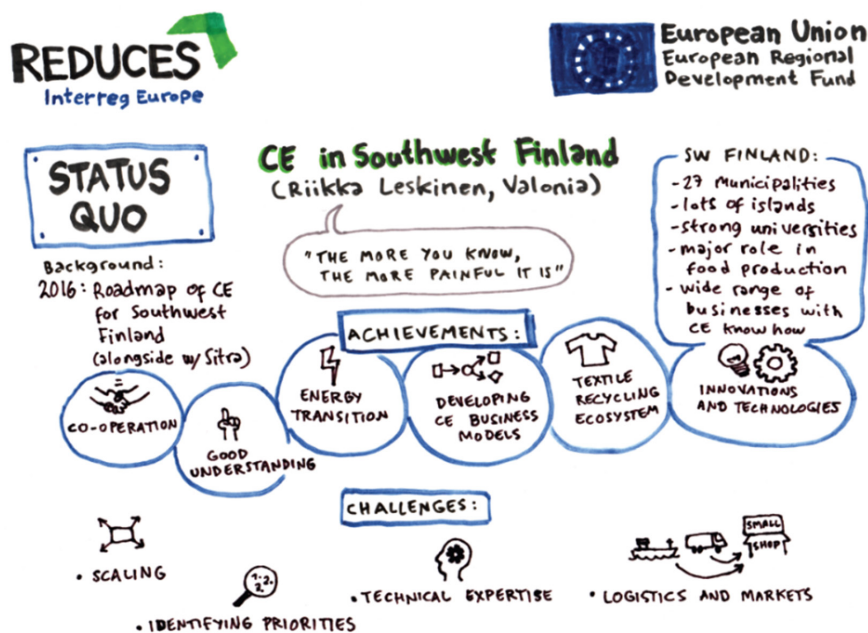 REDUCES
Interreg Europe
European Union
European Regional
Development Fund
STATUS
QUO
CE in Southwest Finland
(Riikka Leskinen, Valonia)
"THE MORE YOU KNOW,
THE MORE PAINFUL IT IS"
SW FINLAND:
-27 Municipalities
-lots of islands
-strong universities
-major role in
food production
-wide range of
businesses with
CE know how
Background:
2016: Roadmap of CE
for Southwest
Finland
(alongside w/ Sitra)
ACHIEVEMENTS:
CO-OPERATION
GOOD
UNDERSTANDING
ENERGY
TRANSITION
DEVELOPING
CE BUSINESS
MODELS
TEXTILE
RECYCLING
ECOSYSTEM
INNOVATIONS
AND TECHNOLOGIES
CHALLENGES:
• SCALING
1.2.
2.
• IDENTIFYING PRIORITIES
• TECHNICAL EXPERTISE
SMALL
SHOP
• LOGISTICS AND MARKETS